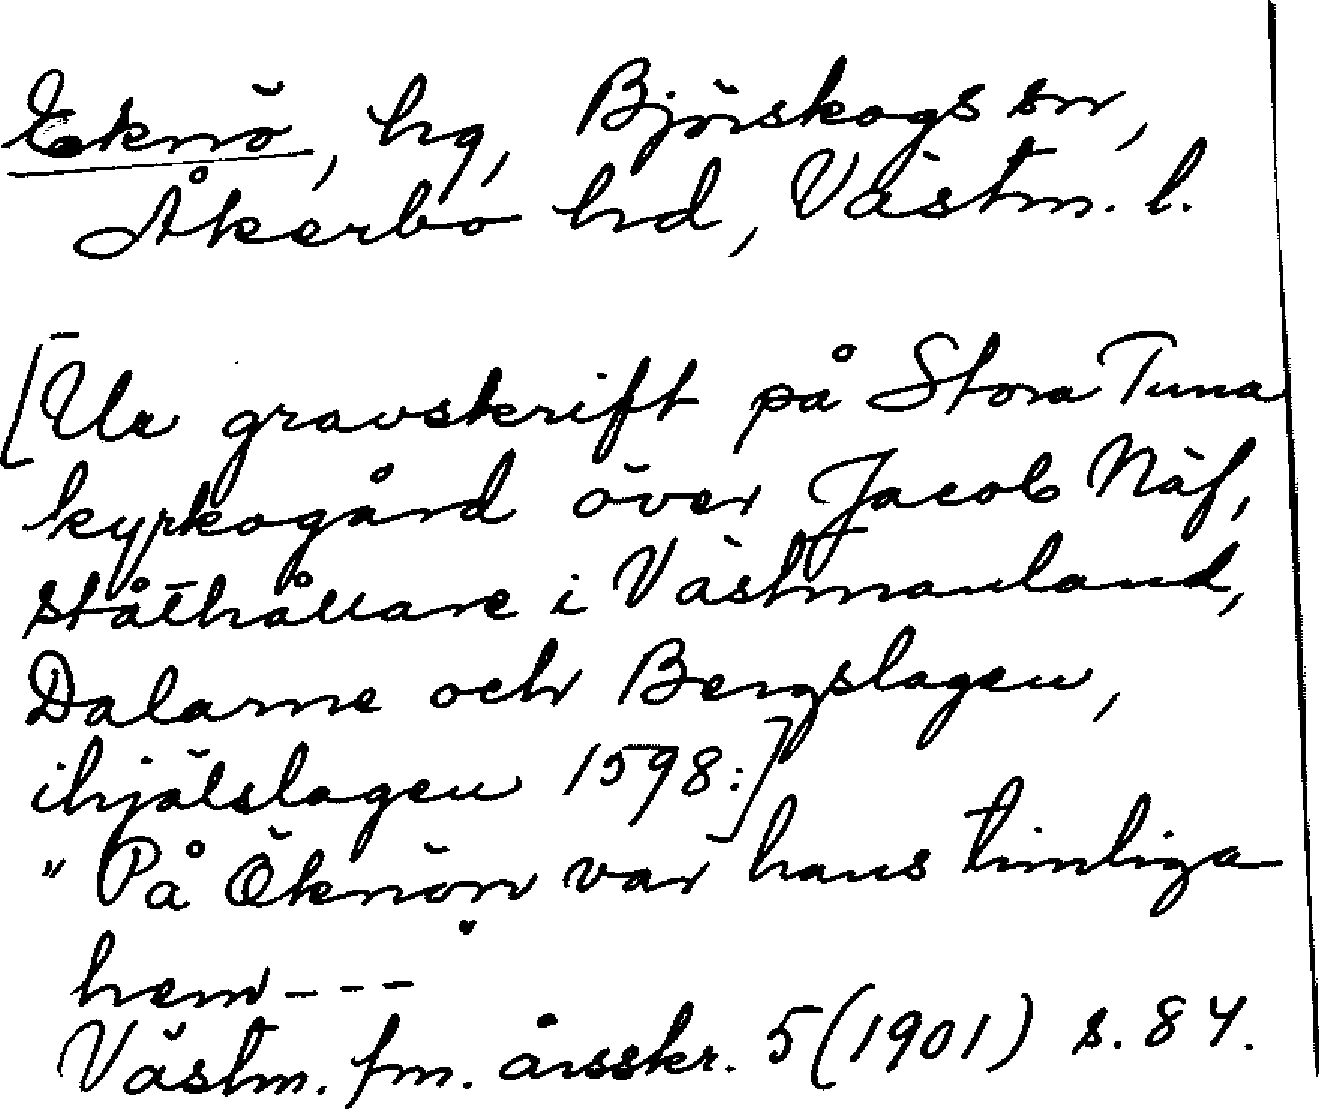 Eknö, hg, Björskogs sn,
Åkerbo hd, Västm. l.
[Ur gravskrift på Stora Tuna
kyrkogård över Jacob Näf,
ståthållare i Västmanland,
Dalarne och Bergslagen,
ihjälslagen 1598:]
"På Öknön var hans timliga
hem---"
Västm. fm. årsskr. 5 (1901) s. 84.